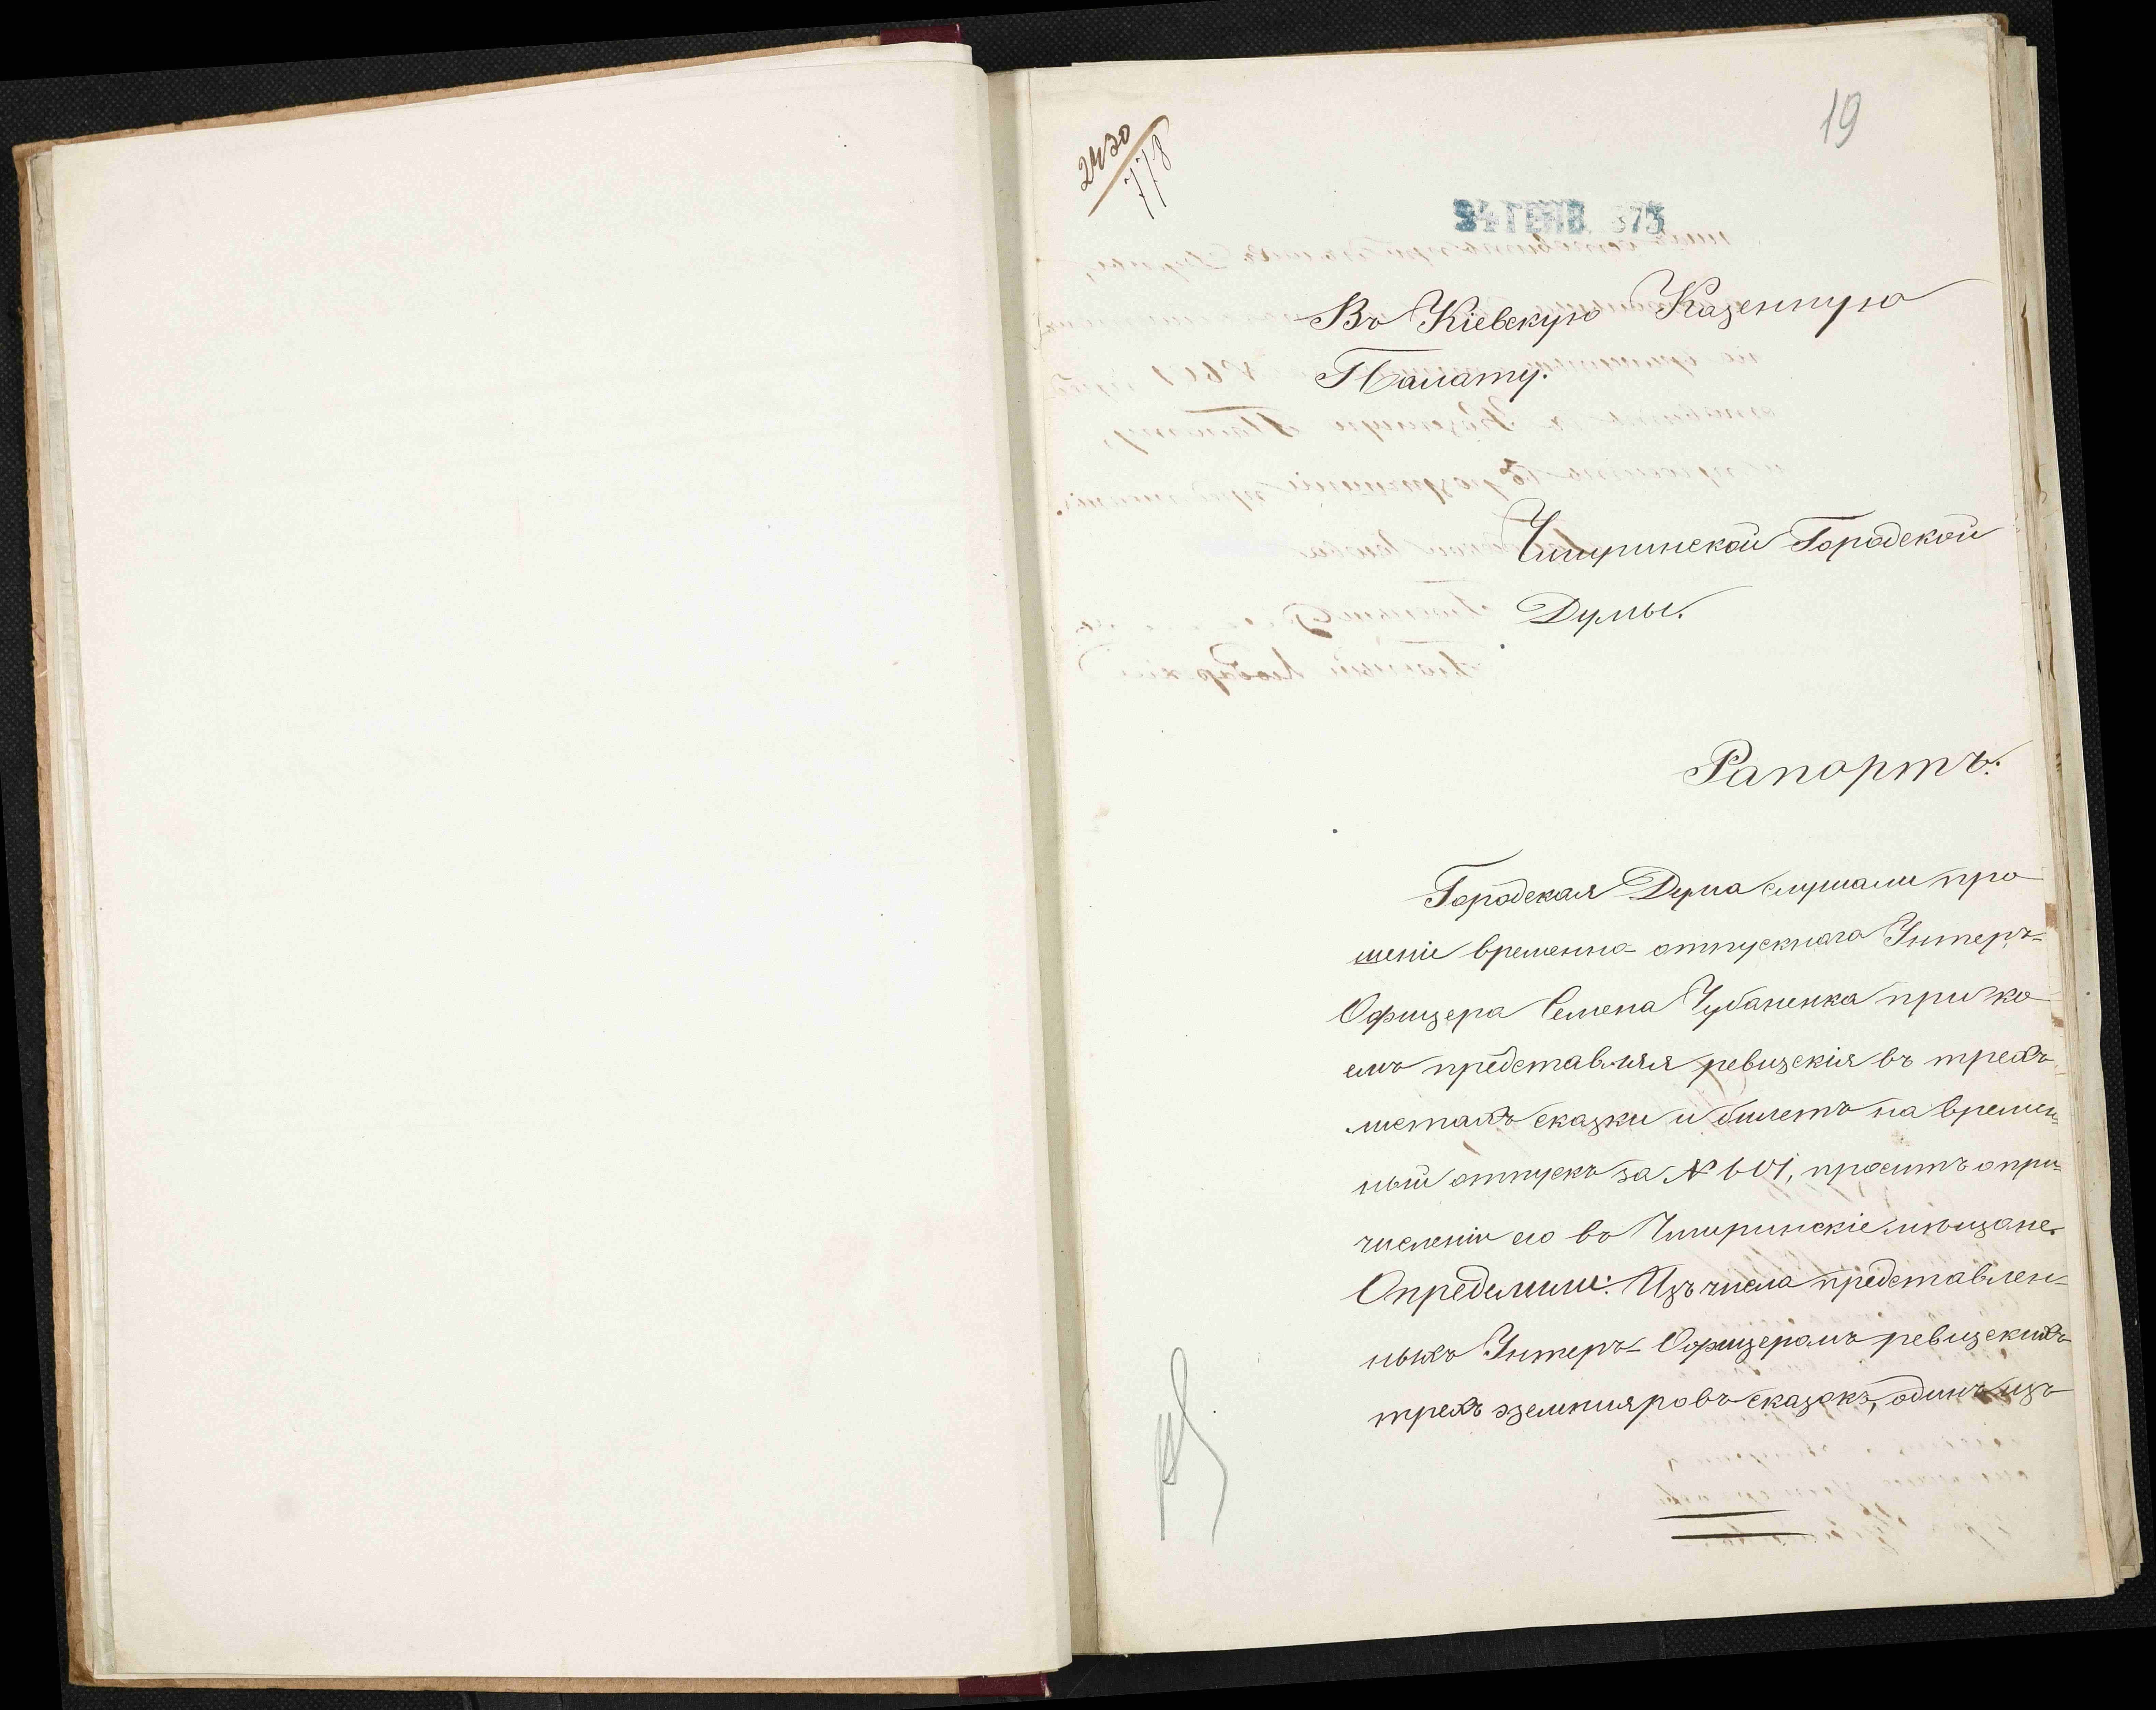 19
2420
778
24 ГЕНВ. 873
Въ Кіевскую Казенную
Палату.
Чигиринской Городской
Думы.
Рапортъ.
Городская Дума слушали про
шеніе временно отпускнаго Унтеръ=
Офицера Семена Чубаненка при ко
емъ представляя ревизскія въ трехъ
листахъ сказки и билетъ на времен=
ный отпускъ за № 601, проситъ о при=
численіи его въ Чигиринскіе мѣщане.
Опредѣлили: Изъ числа представлен=
ныхъ Унтеръ-Офицеромъ ревизскихъ
трехъ эземпляровъ сказокъ, одинъ изъ